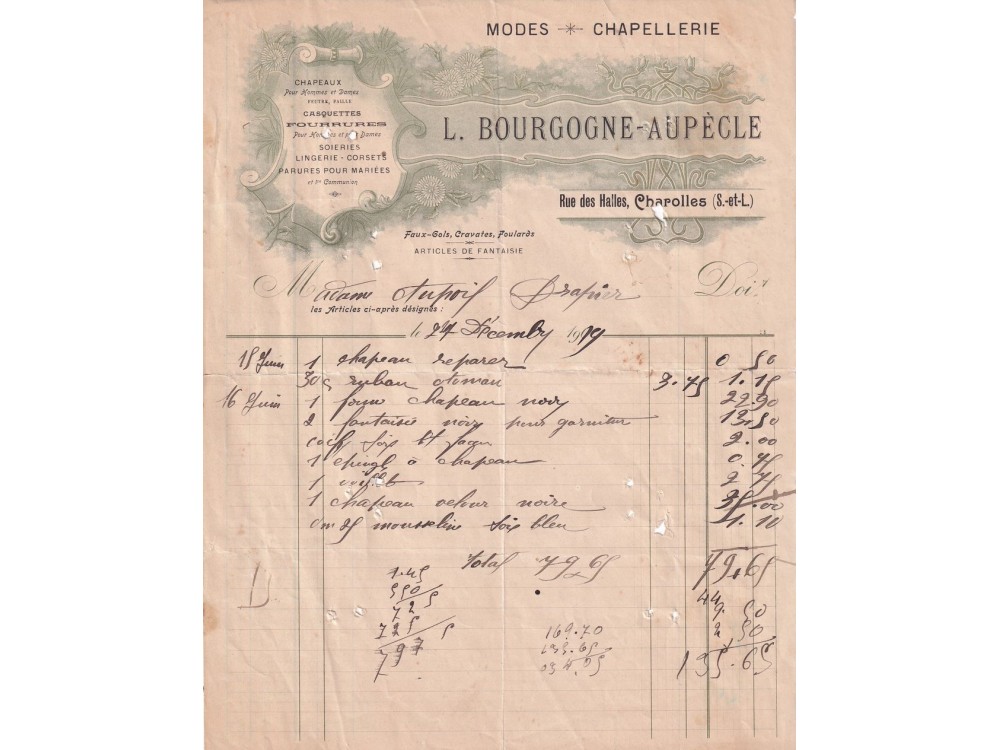 MODES CHAPELLERIE
CHAPEAUX
Pour Hommes et Dames
FEUTRE, PAILLE
CASQUETTES
FOURRURES
Pour Hommes et pour Dames
SOIERIES
LINGERIE - CORSETS
PARURES POUR MARIÉES
et 1re Communion
L. BOURGOGNE-AUPÈCLE
Rue des Halles, Charolles (S.-et-L.)
Faux-Cols, Cravates, Foulards
ARTICLES DE FANTAISIE
Madame Drapier Doit
les Articles ci-après désignés :
le 24 Décembre 1919
15 Juin 1 chapeau reparer 0 50
30c ruban otoman 3.75 1.15
16 Juin 1 forme chapeau noir 22.90
2 fantaisie noir pour garnitur 13.50
coif soie et façon 2.00
1 epingle à chapeau 0.75
1 2 75
1 chapeau velour noire 35.00
0m25 mousseline soie bleu 1.10
Total 79.65 79.65
1.45
550
725
725
797
169.70
135.65
034.05
44
9.50
2 50
135.65